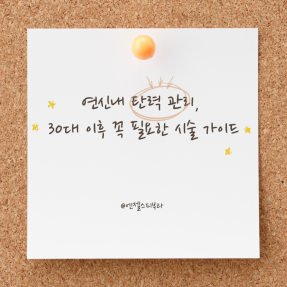 연신내 탄력 관리,
30대 이후 꼭 필요한 시술 가이드
@엔젤스피부과